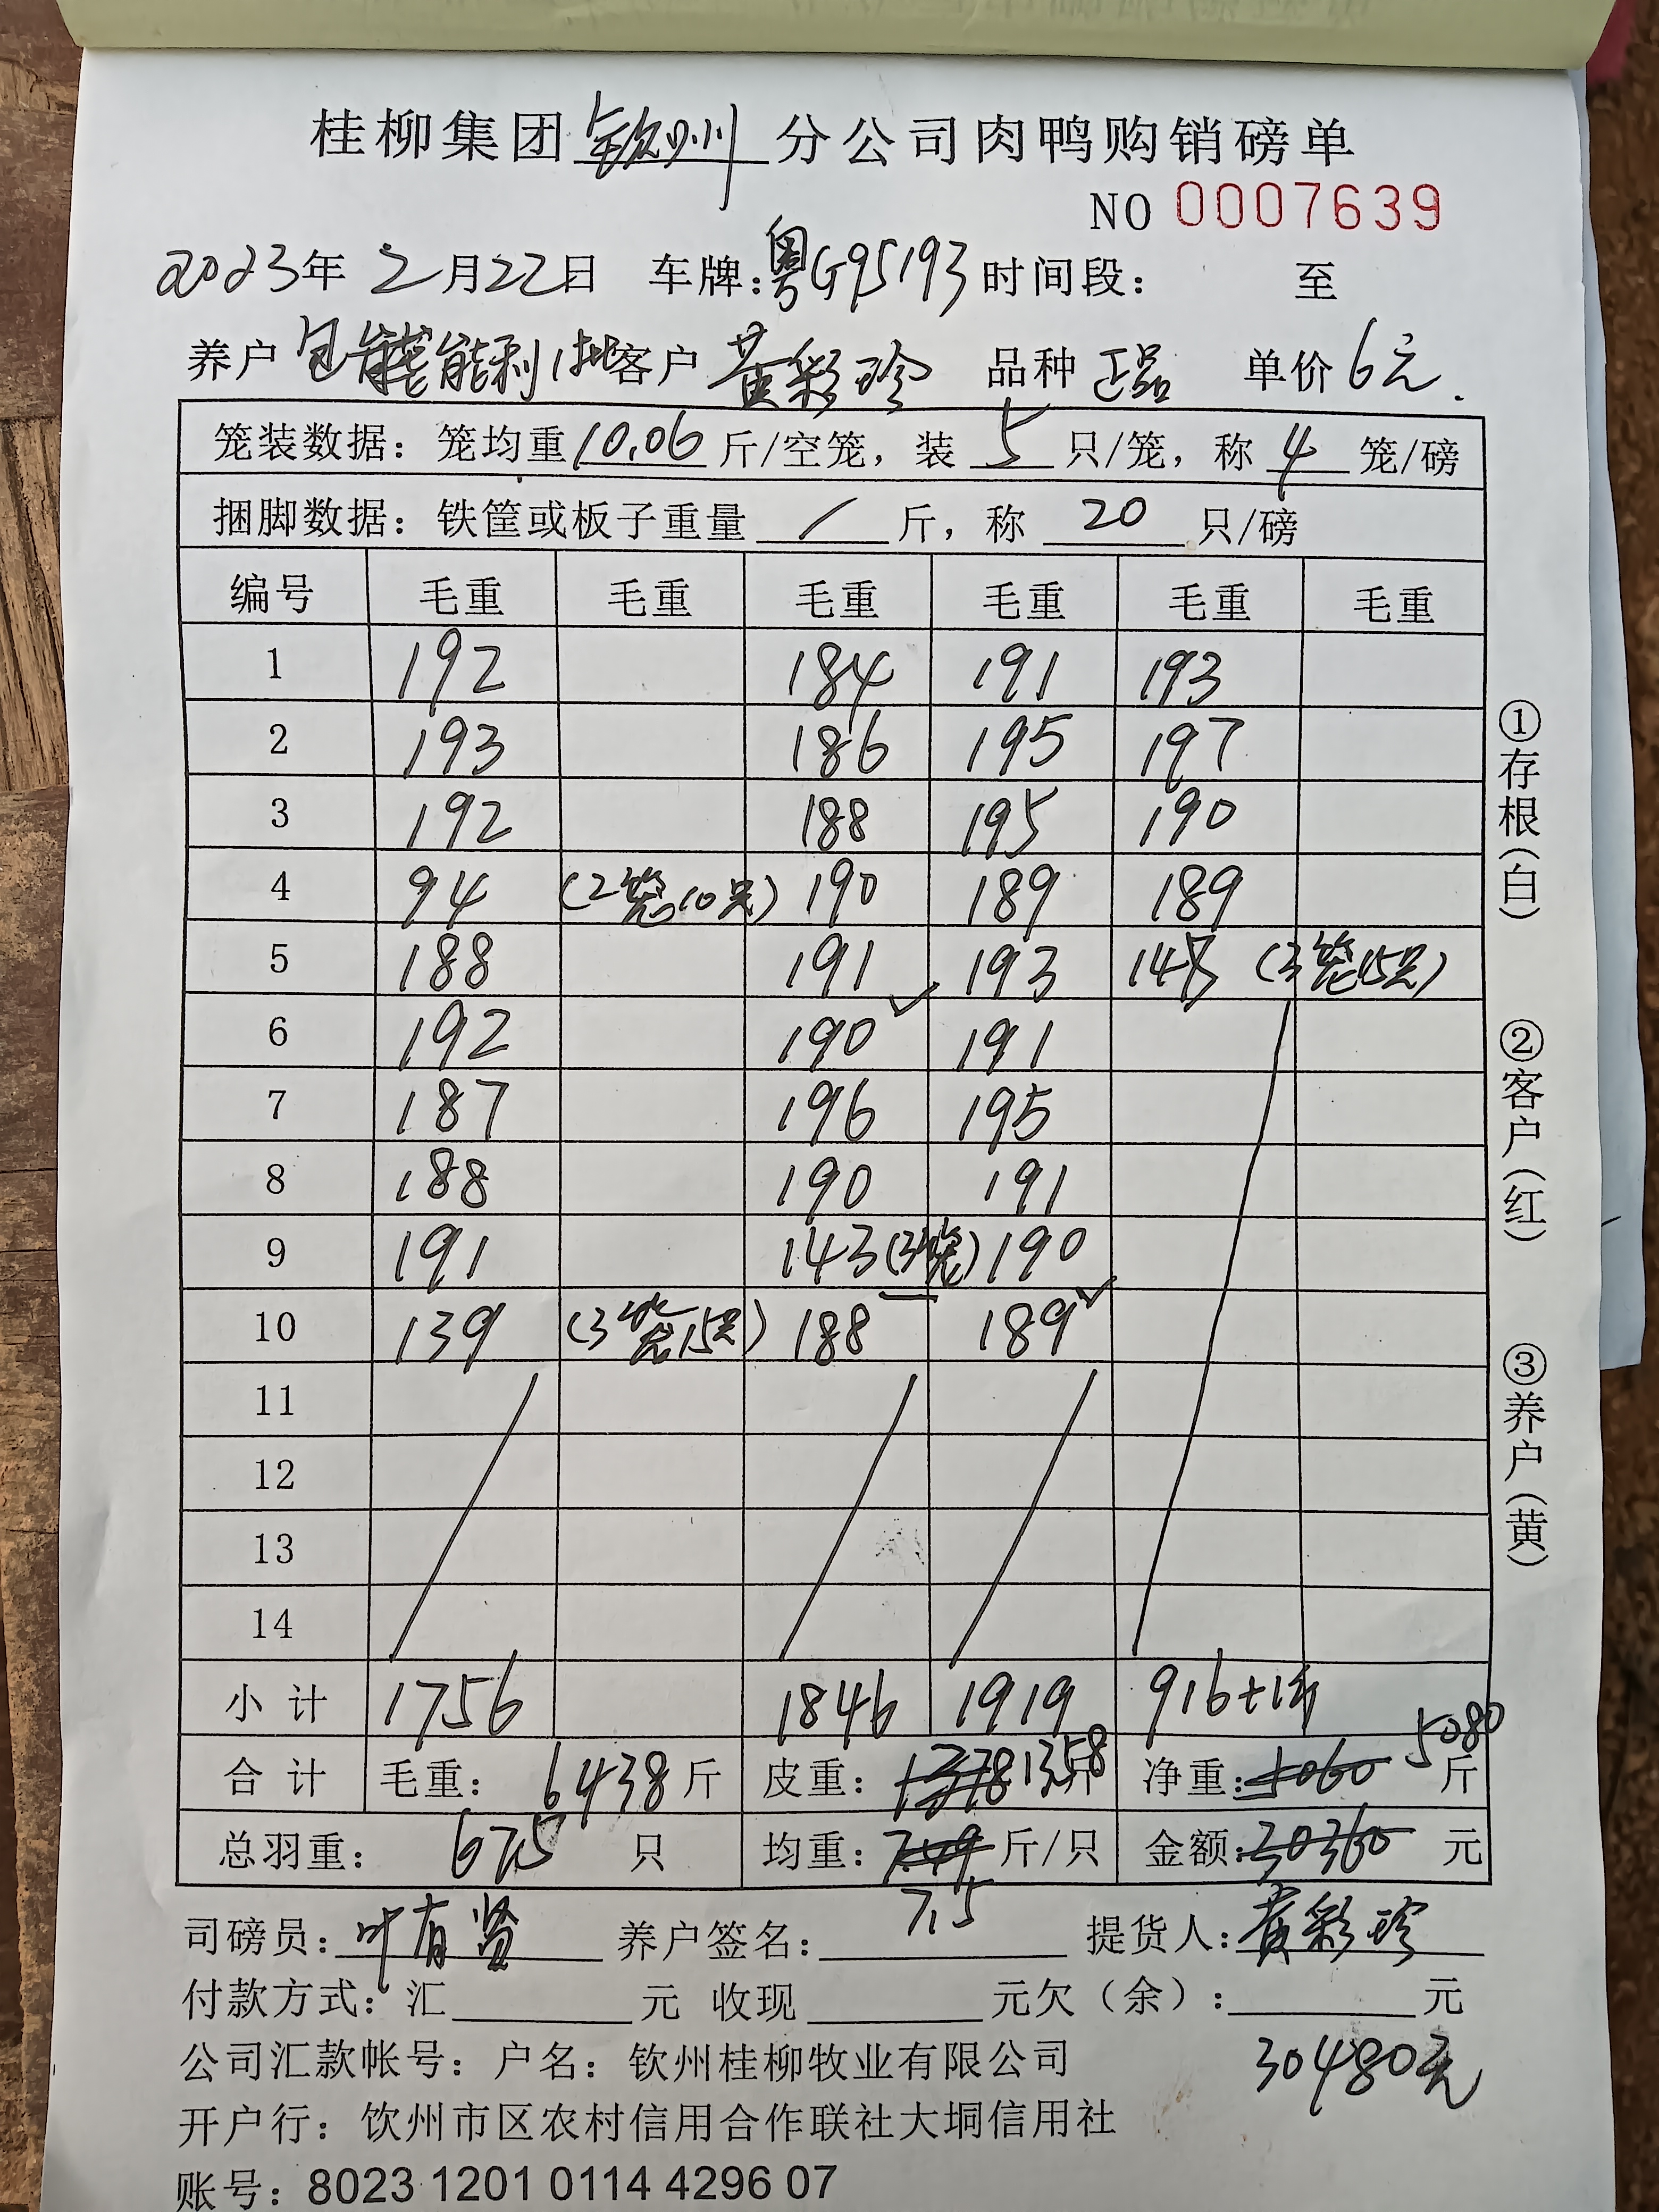 桂柳集团钦州分公司肉鸭购销磅单
NO 0007639
2023年 2月22日 车牌:粤G95193 时间段: 至
养户 能利1批 客户 黄彩珍 品种 正品 单价 6元.
笼装数据:笼均重 10.06 斤/空笼,装 5 只/笼,称 4 笼/磅
捆脚数据:铁筐或板子重量 / 斤,称 20 只/磅
编号 毛重 毛重 毛重 毛重 毛重 毛重
1 192 184 191 193
2 193 186 195 197
3 192 188 195 190
4 94 (2笼10只) 190 189 189
5 188 191 193 (3笼15只)
6 192 190 191
7 187 196 195
8 188 190 191
9 191 143(3笼) 190
10 139 (3笼15只) 188 189
11
12
13
14
小计 1756 1846 1919 916+1斤
合计 毛重: 6438斤 皮重: 1358斤 净重: 5060 5080斤
总羽重: 675 只 均重: 7.49 斤/只 金额: 30360 元
7.5
司磅员: 叶有贤 养户签名: 提货人: 黄彩珍
付款方式:汇 元 收现 元欠(余): 元
公司汇款帐号:户名:钦州桂柳牧业有限公司
30480元
开户行:钦州市区农村信用合作联社大垌信用社
账号:8023 1201 0114 4296 07
①存根(白)
②客户(红)
③养户(黄)